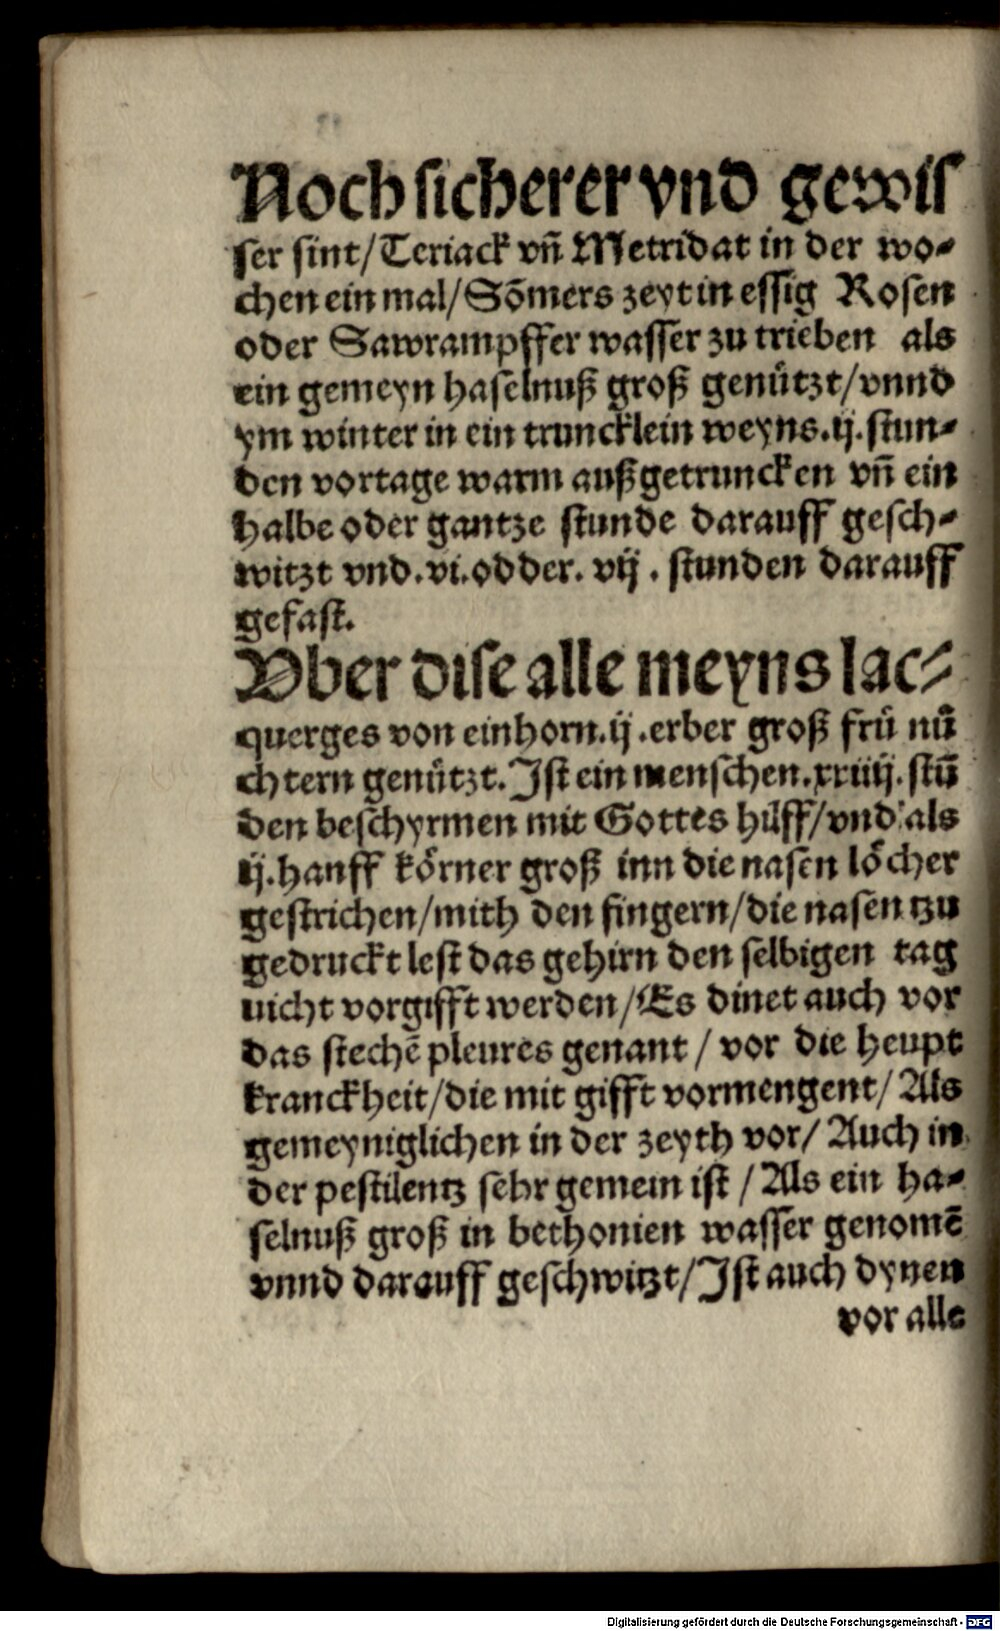 Noch sicherer vnd gewis
ser sint/Teriack vn̄ Metridat in der wo-
chen ein mal/Sōmers zeyt in essig Rosen
oder Sawrampffer wasser zu trieben als
ein gemeyn haselnuß groß genützt/vnnd
ym winter in ein truncklein weyns.ij.stun-
den vor tage warm außgetruncken vn̄ ein
halbe oder gantze stunde darauff gesch-
witzt vnd.vi.odder.vij. stunden darauff
gefast.
Vber dise alle meyns lac-
querges von einhorn.ij.erber groß frü nü
chtern genützt.Ist ein menschen.xxiiij.stū
den beschyrmen mit Gottes hülff/vnd als
ij.hanff körner groß inn die nasen löcher
gestrichen/mith den fingern/die nasen tzu
gedruckt lest das gehirn den selbigen tag
nicht vorgifft werden/Es dinet auch vor
das stechē pleures genant/vor die heupt
kranckheit/die mit gifft vormengent/Als
gemeyniglichen in der zeyth vor/Auch in
der pestilentz sehr gemein ist/Als ein ha-
selnuß groß in bethonien wasser genomē
vnnd darauff geschwitzt/Ist auch dynen
vor alle
Digitalisierung gefördert durch die Deutsche Forschungsgemeinschaft - DFG